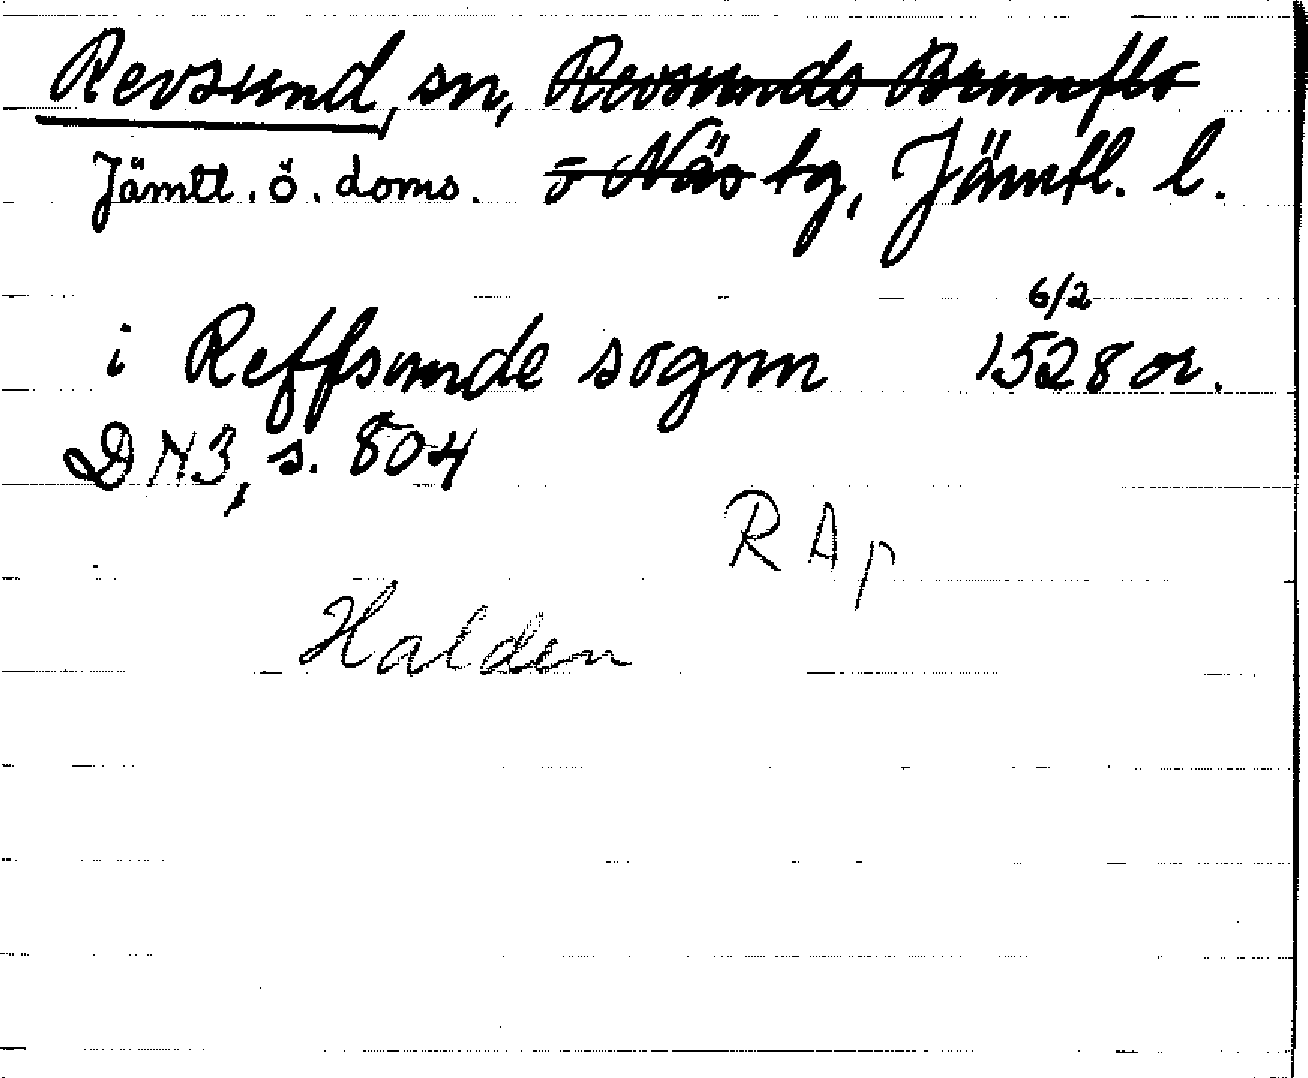 Revsund, sn, Revsunds Brunflo
Jämtl. ö. doms. o Näs tg, Jämtl. l.
6/2
i Reffsunde sognn 1528 or.
DN3, s. 804
RAp
Halden